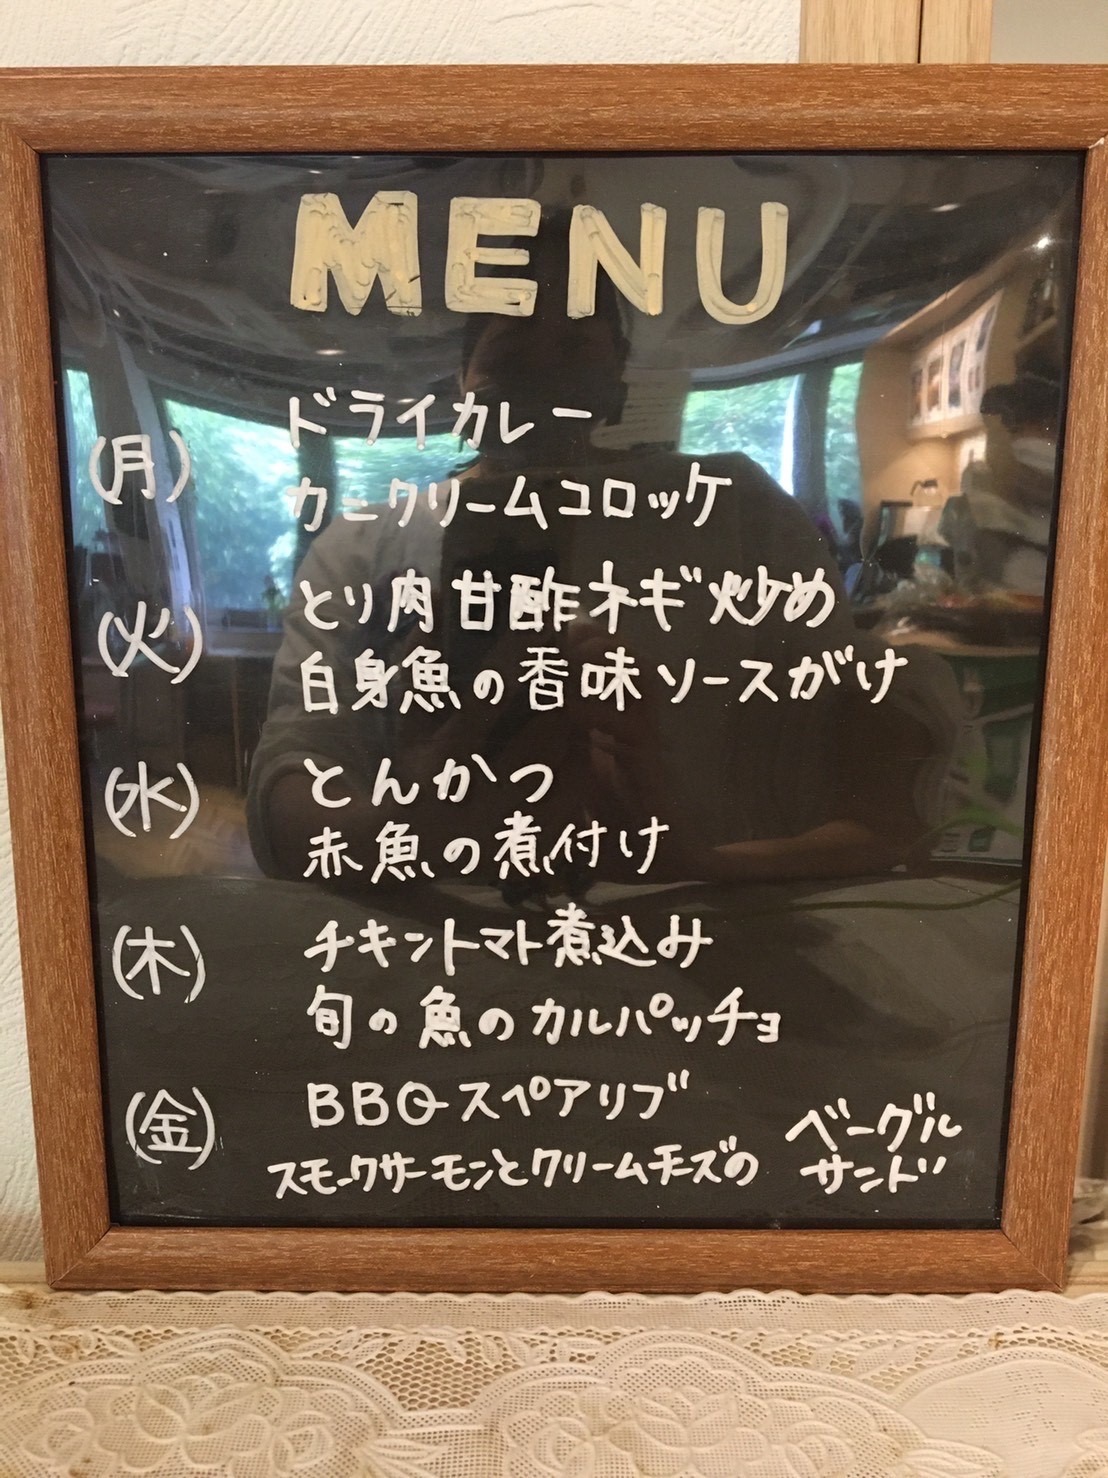 MENU
(月)
ドライカレー
カニクリームコロッケ
(火)
とり肉甘酢ネギ炒め
白身魚の香味ソースがけ
(水)
とんかつ
赤魚の煮付け
(木)
チキントマト煮込み
旬の魚のカルパッチョ
(金)
BBQスペアリブ
スモークサーモンとクリームチーズの
ベーグル
サンド